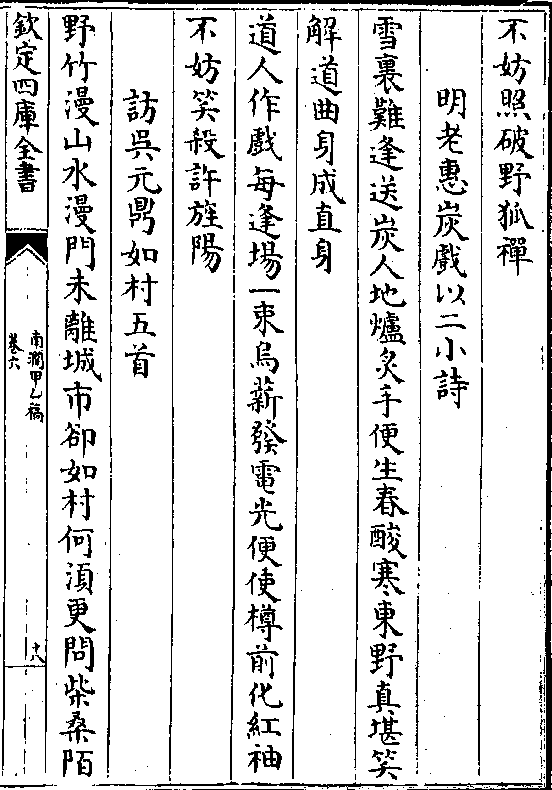 不妨照破野狐禪
明老惠炭戲以二小詩
雪裏難逢送炭人地爐炙手便生春酸寒東野真堪笑
解道曲身成直身
道人作戲每逢場一束烏薪發電光便使樽前化紅袖
不妨笑殺許旌陽
訪吳元鼎如村五首
野竹漫山水漫門未離城市卻如村何須更問柴桑陌
欽定四庫全書
南澗甲乙稿
卷六
十八